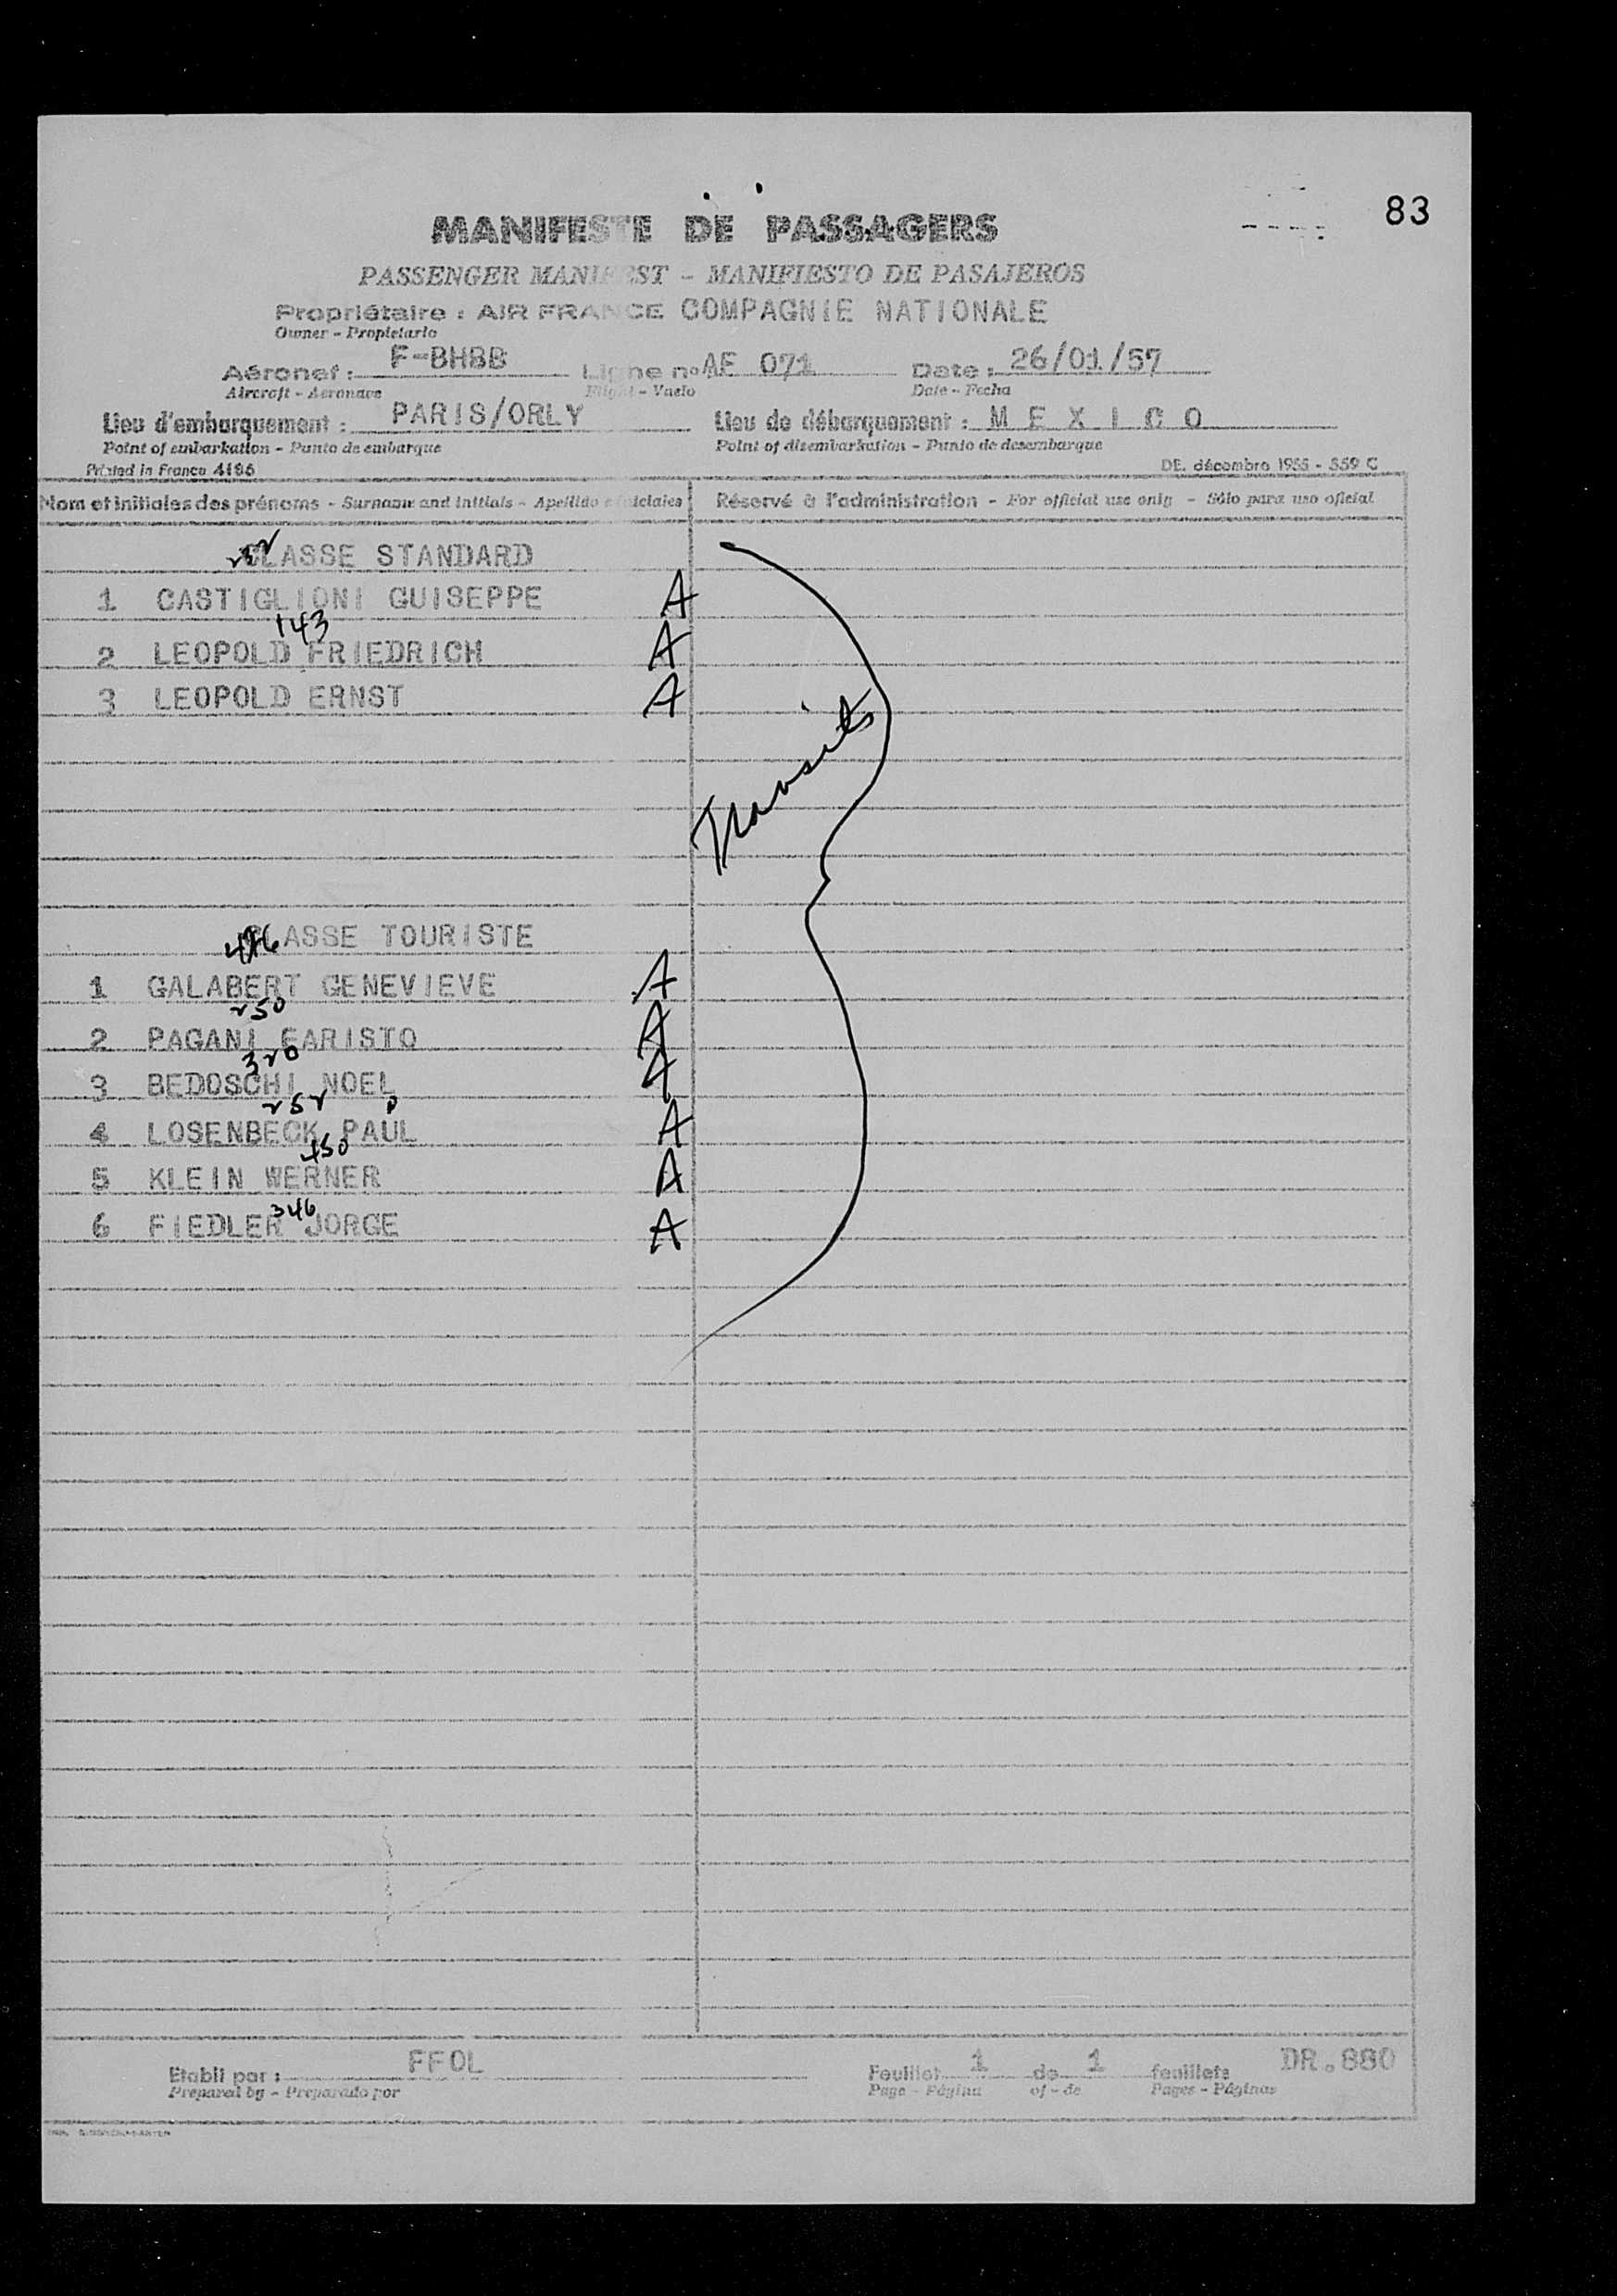 83
MANIFESTE DE PASSAGERS
PASSENGER MANIFEST - MANIFIESTO DE PASAJEROS
Propriétaire : AIR FRANCE COMPAGNIE NATIONALE
Owner - Propietario
Aéronef : F-BHBB Ligne n° AF 071 Date : 26/01/57
Aircraft - Aeronave Flight - Vuelo Date - Fecha
Lieu d'embarquement : PARIS/ORLY Lieu de débarquement : MEXICO
Point of embarkation - Punto de embarque Point of disembarkation - Punto de desembarque
Printed in France 4186 DE. décembre 1955 - 559 C
Nom et initiales des prénoms - Surname and initials - Apellido e iniciales Réservé à l'administration - For official use only - Sólo para uso oficial
CLASSE STANDARD
1 CASTIGLIONI GUISEPPE A
143
2 LEOPOLD FRIEDRICH A
3 LEOPOLD ERNST A
Transits
CLASSE TOURISTE
1 GALABERT GENEVIEVE A
250
2 PAGANI EARISTO A
320
3 BEDOSCHI NOEL A
252
4 LOSENBECK PAUL A
450
5 KLEIN WERNER A
346
6 FIEDLER JORGE A
Etabli par : FFOL Feuillet 1 de 1 feuillets DR.880
Prepared by - Preparado por Page - Página of - de Pages - Páginas